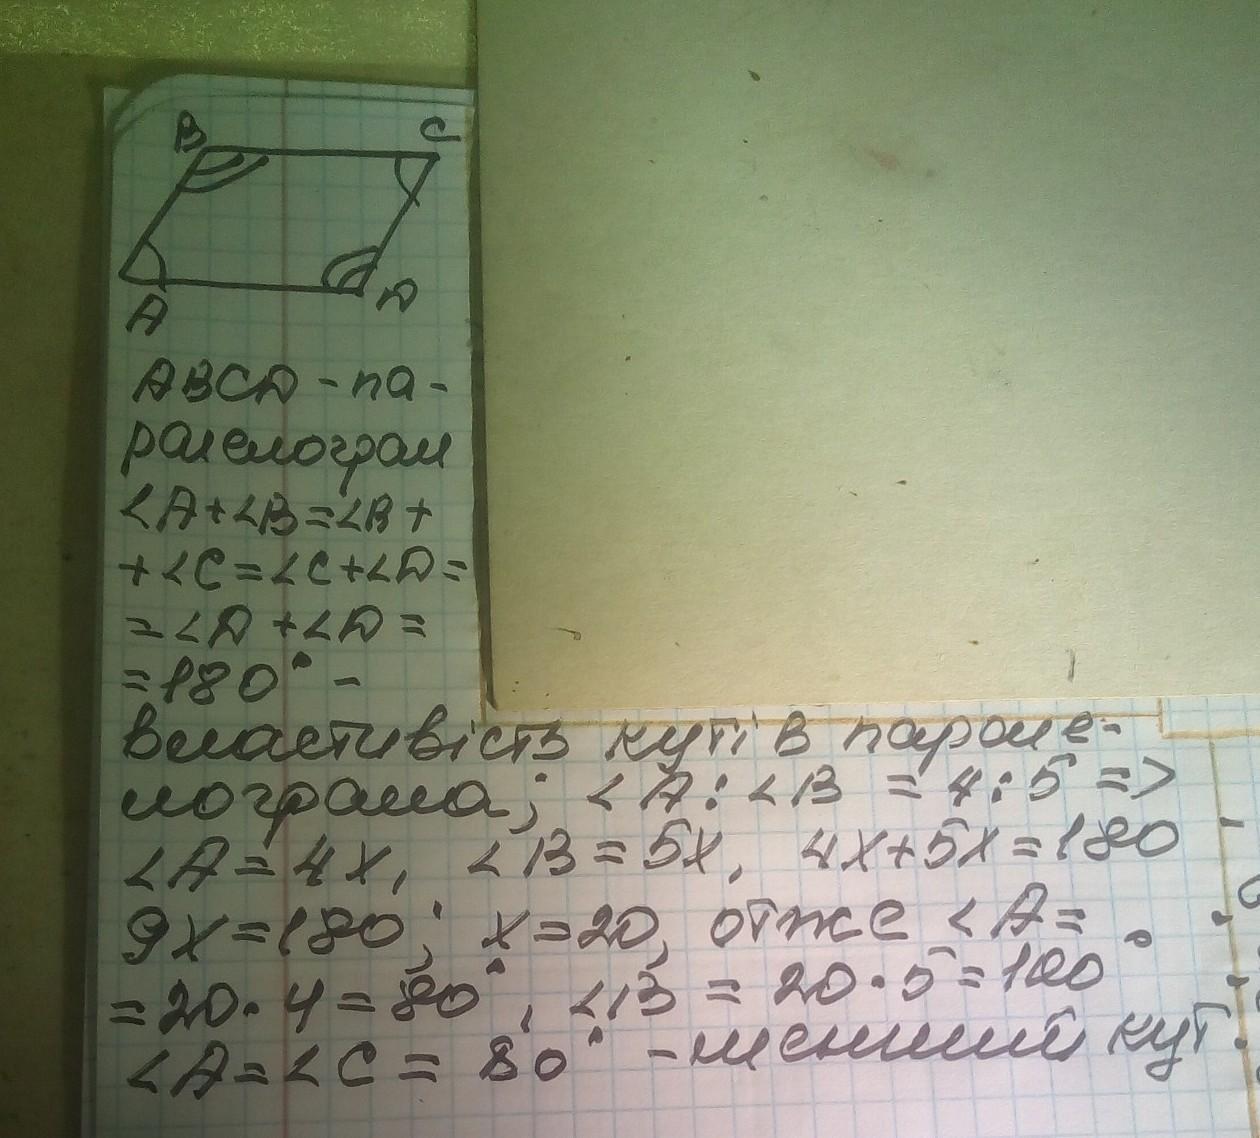 B C
A D
ABCD - па-
ралелограм
∠A+∠B=∠B+
+∠C=∠C+∠D=
=∠D+∠D=
=180° -
властивість кутів парале-
лограма; ∠A:∠B = 4:5 =>
∠A=4x, ∠B=5x, 4x+5x=180
9x=180; x=20, отже ∠A=
=20·4=80°, ∠B = 20·5=100°
∠A=∠C = 80° - менший кут.